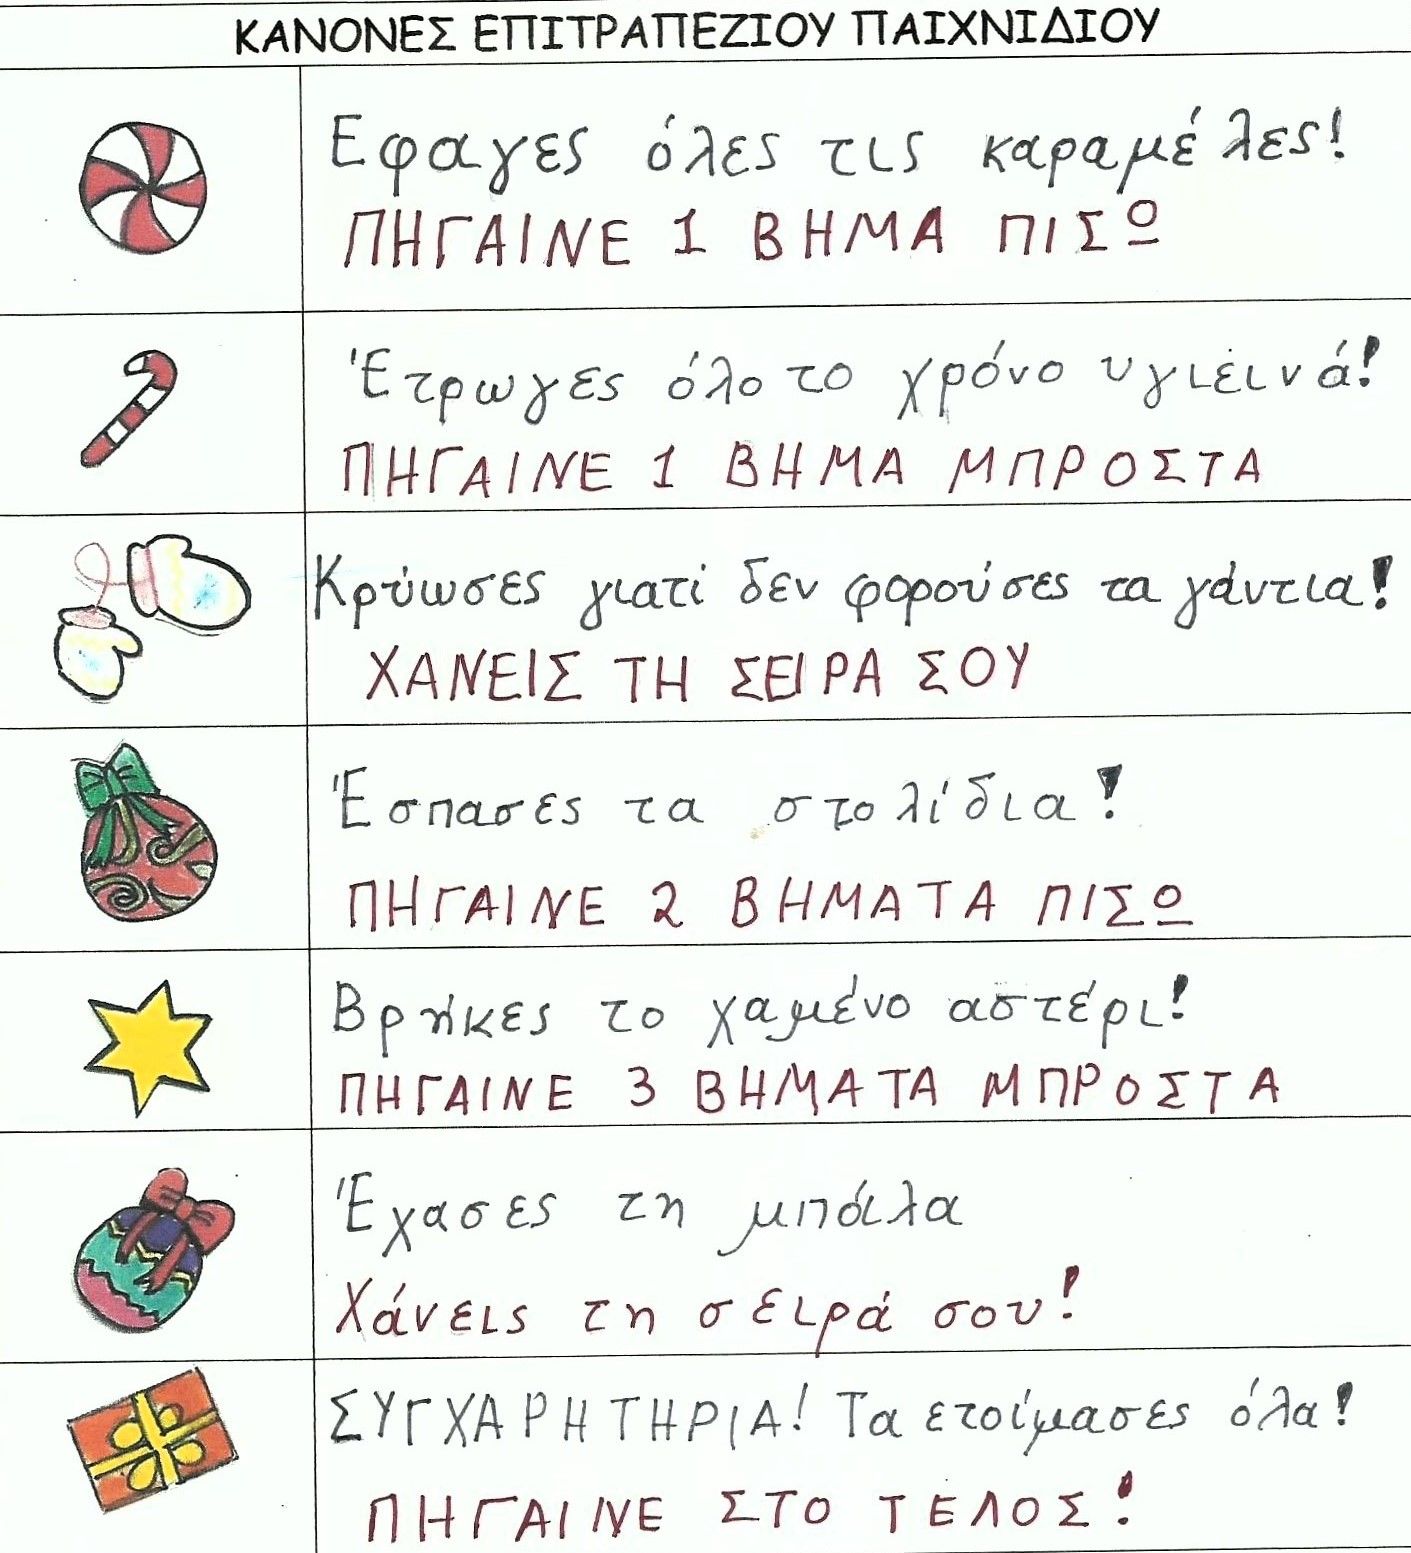 ΚΑΝΟΝΕΣ ΕΠΙΤΡΑΠΕΖΙΟΥ ΠΑΙΧΝΙΔΙΟΥ
Εφαγες όλες τις καραμέλες!
ΠΗΓΑΙΝΕ 1 ΒΗΜΑ ΠΙΣΩ
Έτρωγες όλο το χρόνο υγιεινά!
ΠΗΓΑΙΝΕ 1 ΒΗΜΑ ΜΠΡΟΣΤΑ
Κρύωσες γιατί δεν φορούσες τα γάντια!
ΧΑΝΕΙΣ ΤΗ ΣΕΙΡΑ ΣΟΥ
Έσπασες τα στολίδια!
ΠΗΓΑΙΝΕ 2 ΒΗΜΑΤΑ ΠΙΣΩ
Βρήκες το χαμένο αστέρι!
ΠΗΓΑΙΝΕ 3 ΒΗΜΑΤΑ ΜΠΡΟΣΤΑ
Έχασες τη μπάλα
Χάνεις τη σειρά σου!
ΣΥΓΧΑΡΗΤΗΡΙΑ! Τα ετοίμασες όλα!
ΠΗΓΑΙΝΕ ΣΤΟ ΤΕΛΟΣ!